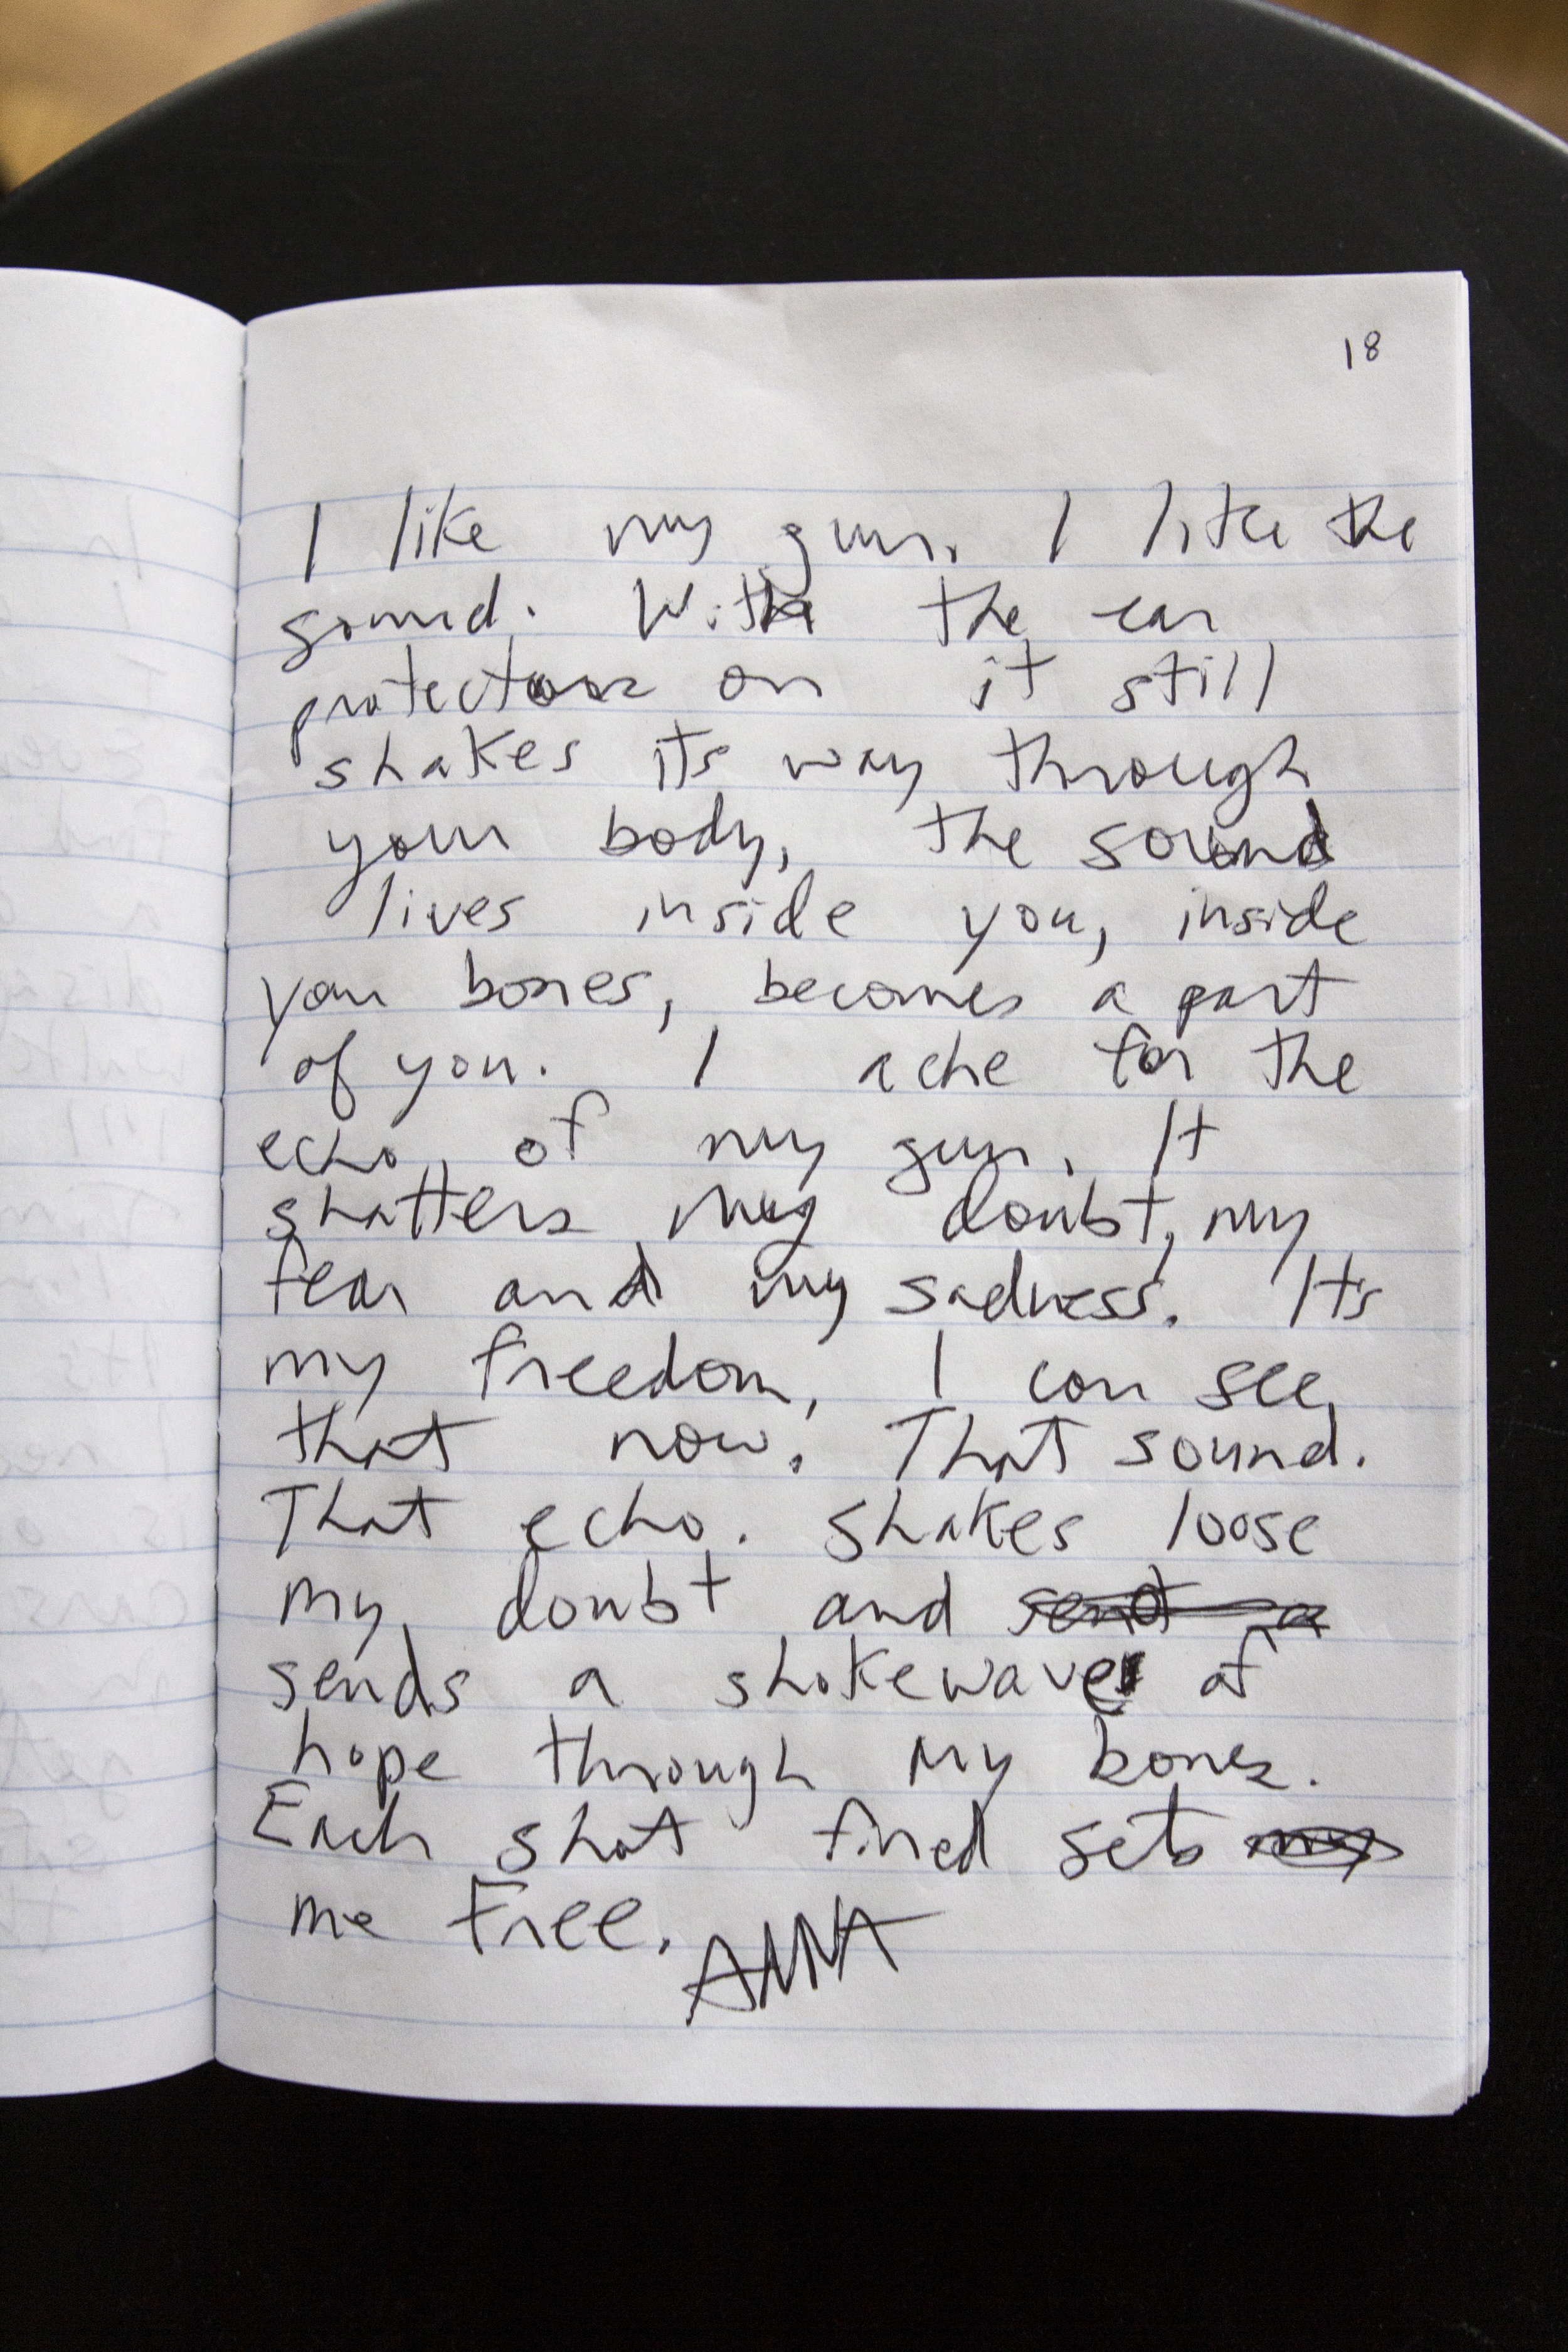 18
I like my gun. I like the
sound. With the ear
protectors on it still
shakes its way through
your body, the sound
lives inside you, inside
your bones, becomes a part
of you. I ache for the
echo of my gun. It
shatters my doubt, my
fear and my sadness. It's
my freedom, I can see
that now. That sound.
That echo. Shakes loose
my doubt and send a
sends a shokewave of
hope through my bones.
Each shot fired sets my
me free. ANNA